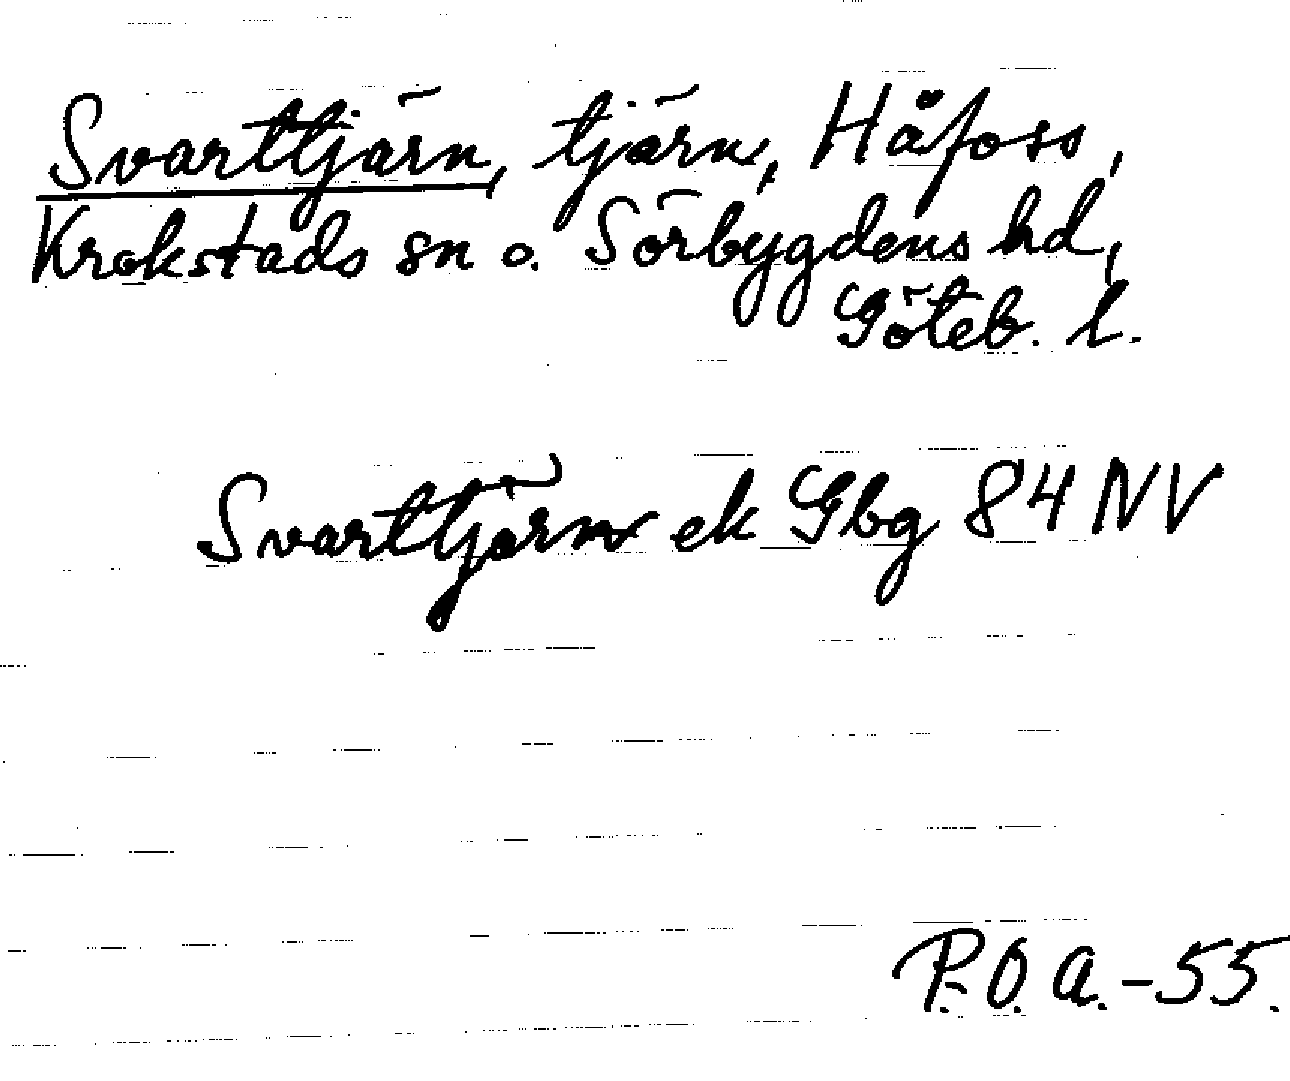 Svarttjärn, tjärn, Håfoss,
Krokstads sn o. Sörbygdens hd,
Göteb. l.
Svarttjärn ek Gbg 84 NV
P.O.A.-55.